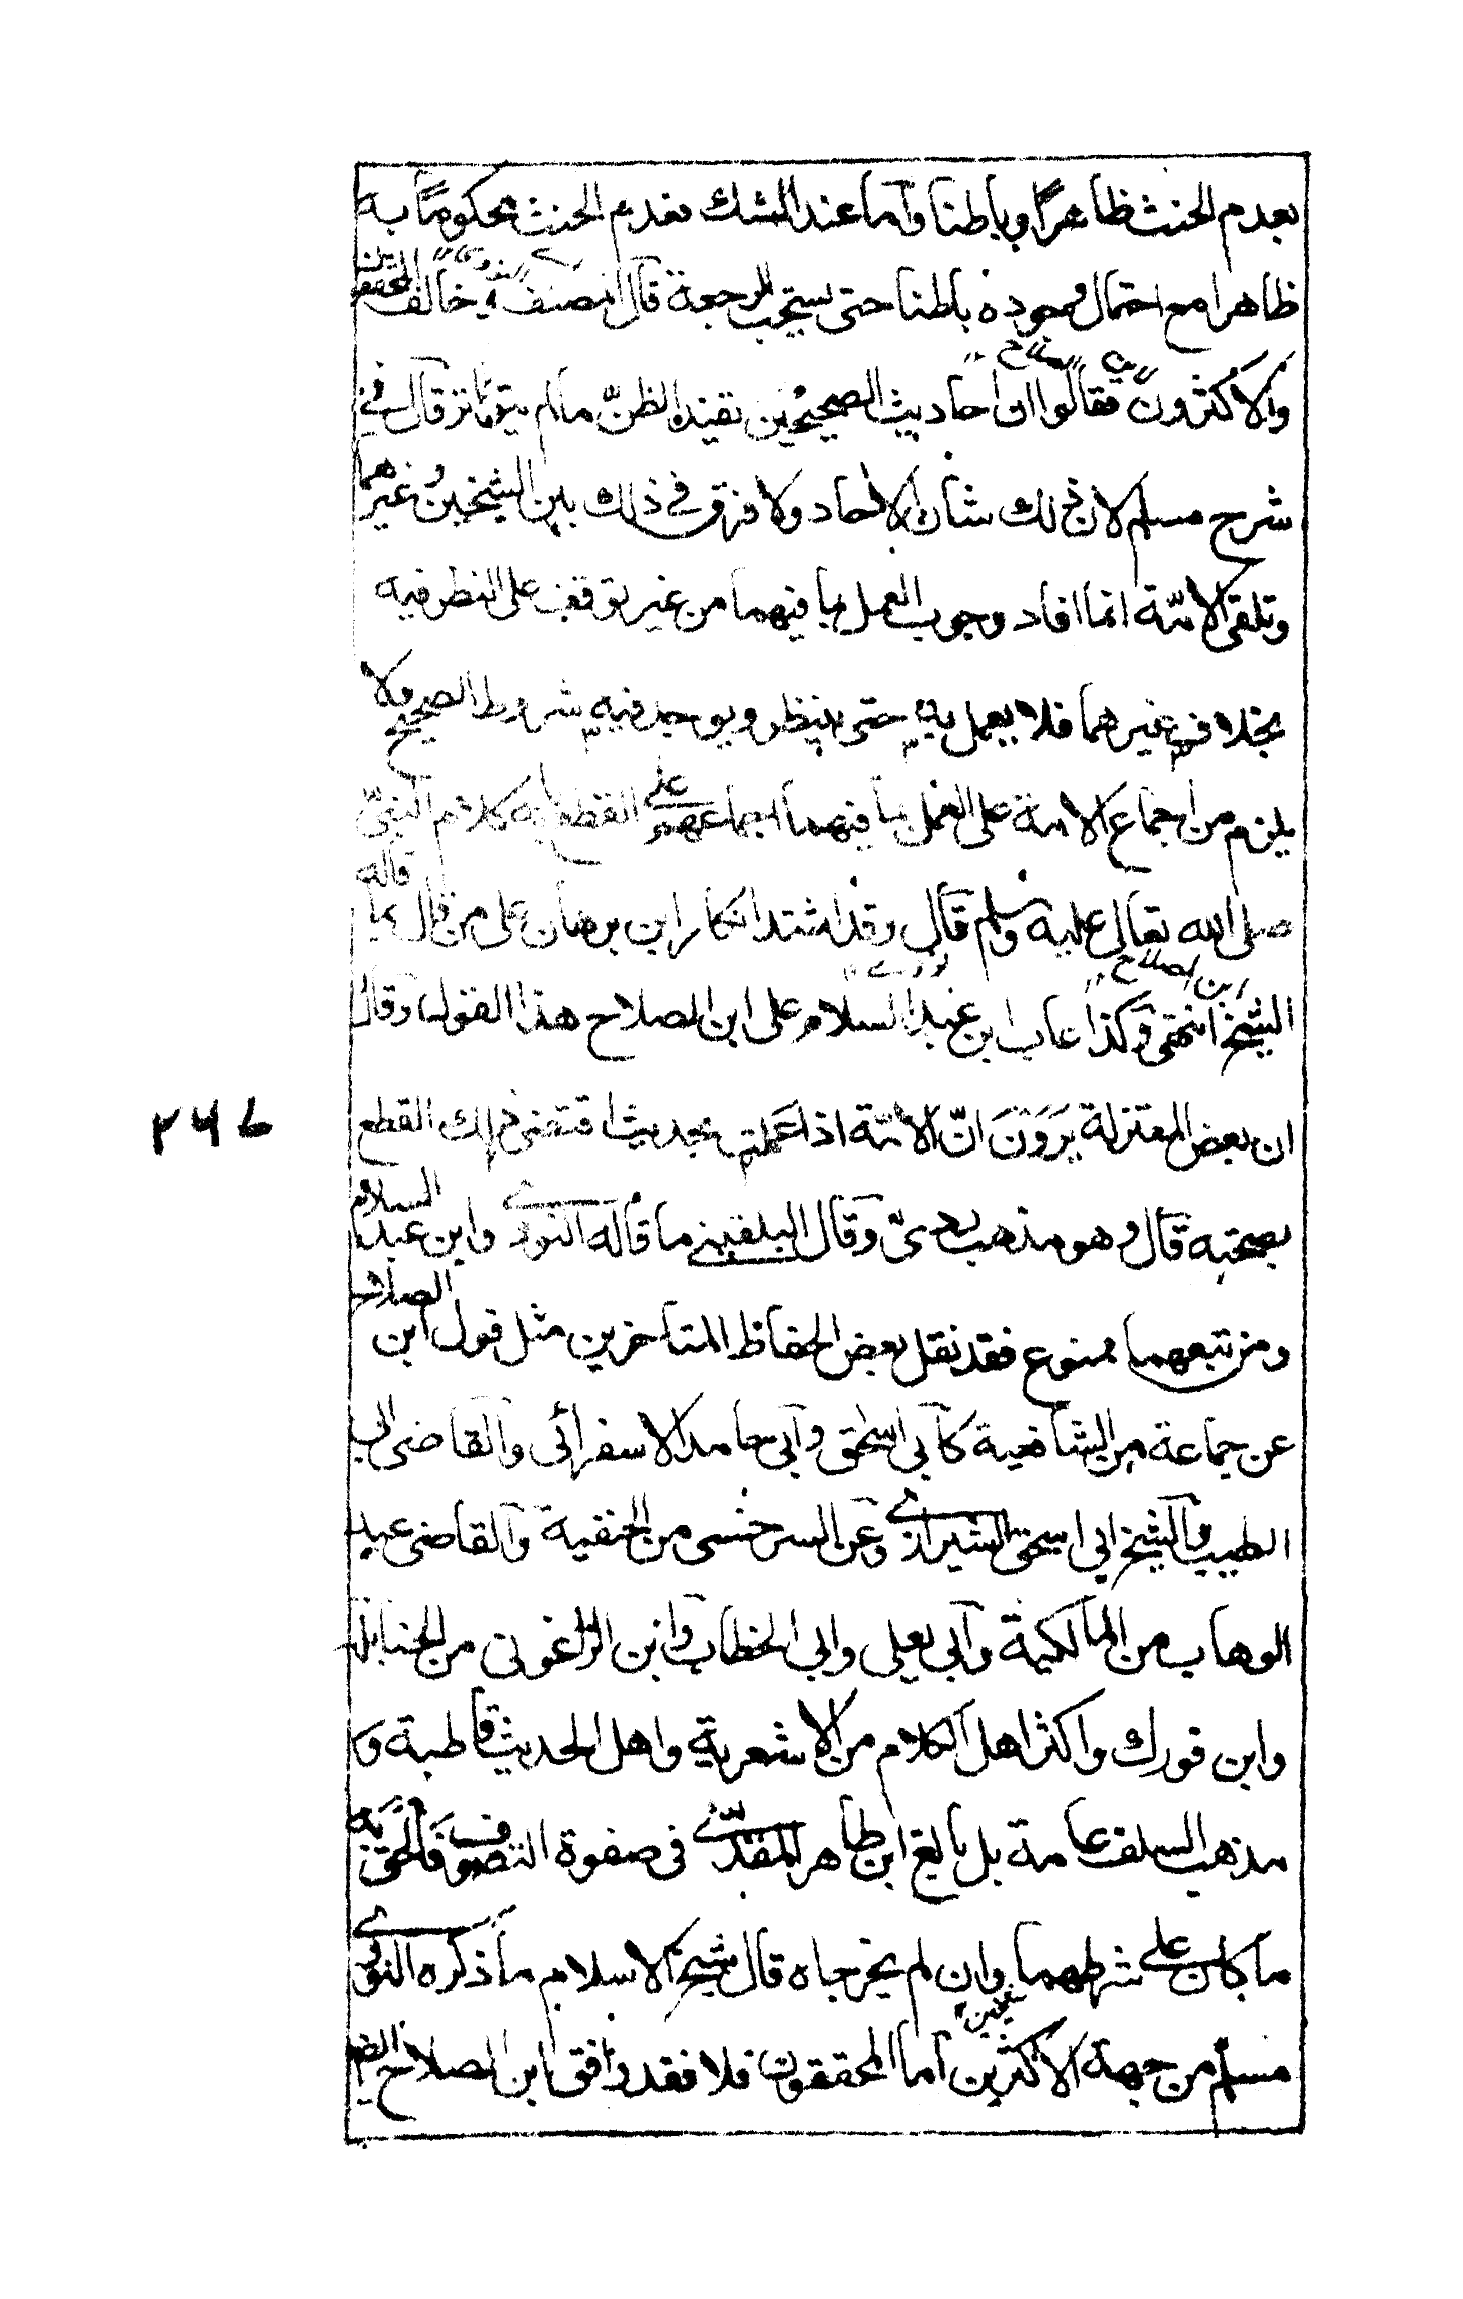 بعدم الحنث ظاهراً وباطنا وأما عند الشك فعدم الحنث محكوماً به
ظاهرا مع احتمال وجوده باطنا حتى يستحب الرجعة قال المصنف وخالف المحققون
والاكثرون فقالوا ان احاديث الصحيحين تفيد الظنّ ما لم يتواتر قال في
شرح مسلم لان ذلك شأن الاحاد ولا فرق في ذلك بين الشيخين وغيرهما
وتلقى الامّة انما افاد وجوب العمل بما فيهما من غير توقف على النظر فيه
بخلاف غيرهما فلا يعمل به حتى ينظر ويوجد فيه شروط الصحيح ولا
يلزم من اجماع الامة على العمل بما فيهما اجماعهم على القطع بانه كلام النبيّ
صلى الله تعالى عليه وسلم قال وقد اشتد انكار ابن برهان على من قال بما قاله
الشيخ انتهى وكذا عاب ابن عبد السلام على ابن الصلاح هذا القول وقال
ان بعض المعتزلة يَرَوْنَ انّ الامّة اذا عملت بحديث اقتضى ذلك القطع
بصحته قال وهو مذهب ردئ وقال البلقيني ما قاله النووي وابن عبد السلام
ومن تبعهما ممنوع فقد نقل بعض الحفاظ المتاخرين مثل قول ابن الصلاح
عن جماعة من الشافعية كأبي اسحق وابي حامد الاسفرائى والقاضى ابى
الطيب والشيخ ابي اسحق الشيرازي وعن السرخسى من الحنفية والقاضى عبد
الوهاب من المالكية وابي يعلى وابي الخطاب وابن الزاغونى من الحنابلة
وابن فورك واكثر اهل الكلام من الاشعرية واهل الحديث قاطبة و
مذهب السلف عامة بل بالغ ابن طاهر المقدسي في صفوة التصوف فألحق به
ما كان على شرطهما وان لم يخرجاه قال شيخ الاسلام ما ذكره النووي في
مسلم من جهة الاكثرين اما المحققون فلا فقد وافق ابن الصلاح ايضا
٢٤٦